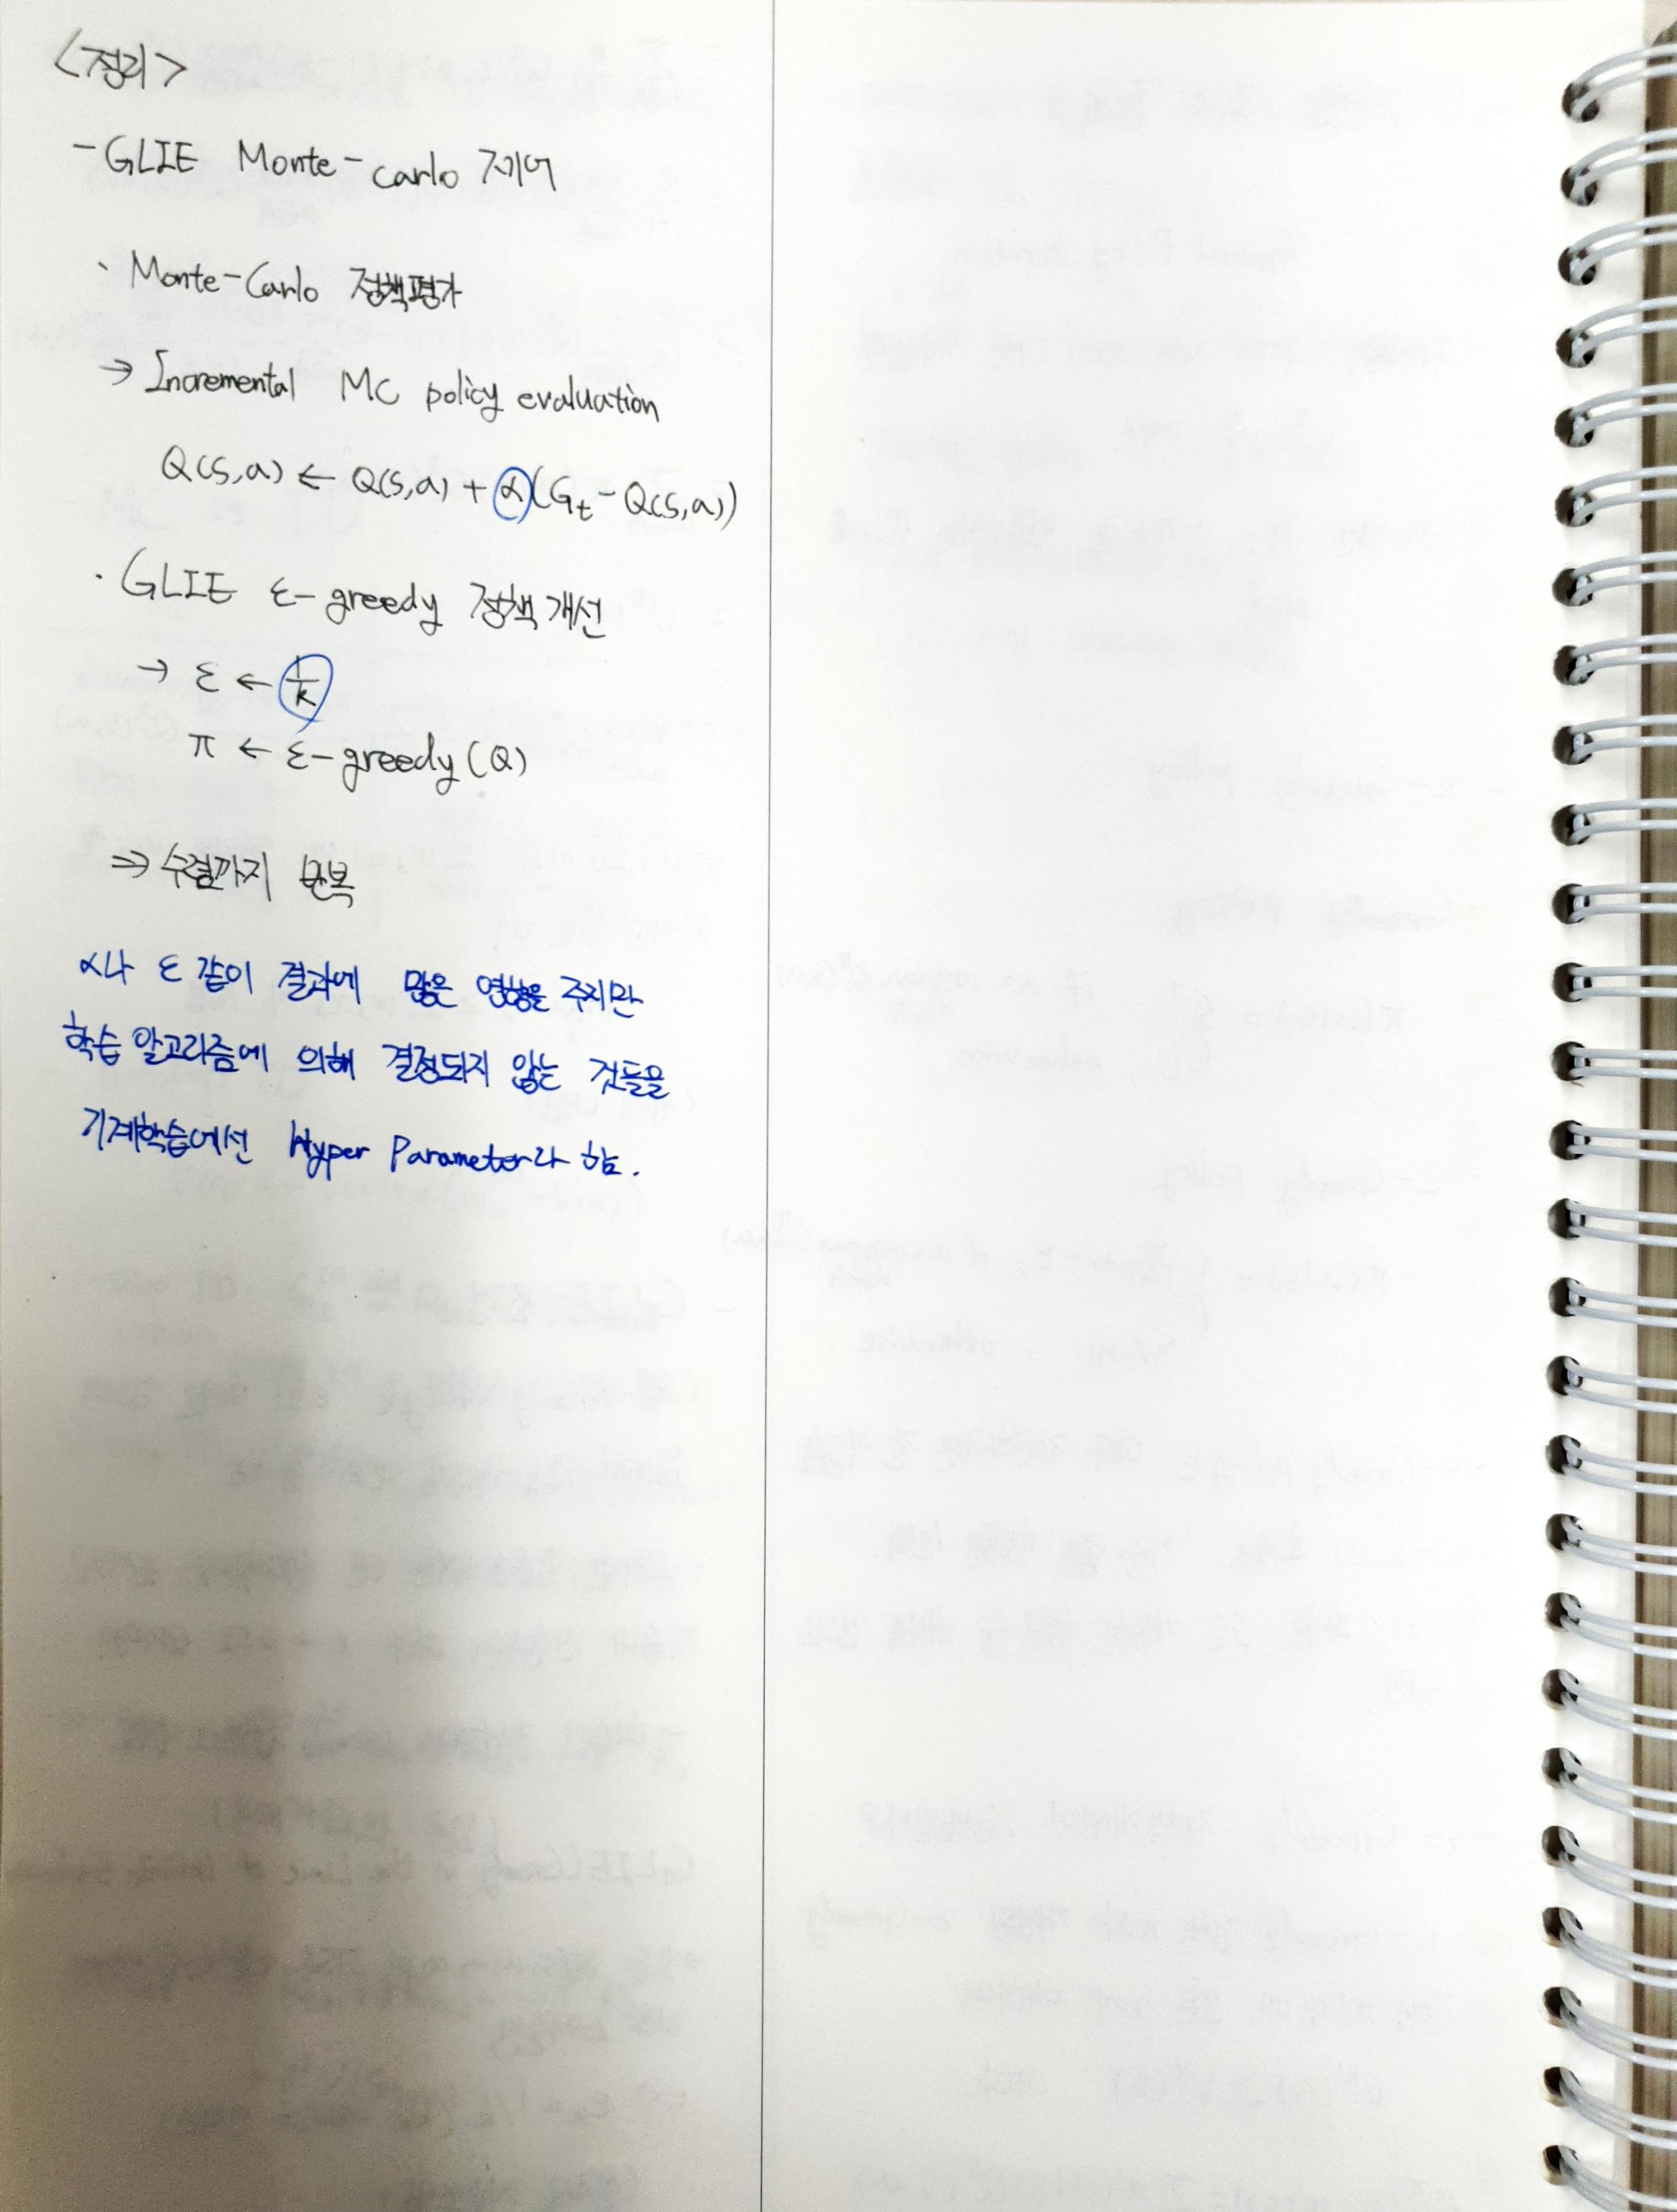 <정리>
- GLIE Monte-carlo 제어
· Monte-Carlo 정책평가
→ Incremental MC policy evaluation
Q(s,a) ← Q(s,a) + α(G_t - Q(s,a))
· GLIE ε-greedy 정책개선
→ ε ← 1/k
π ← ε-greedy(Q)
⇒ 수렴까지 반복
α나 ε 같이 결과에 많은 영향을 주지만
학습 알고리즘에 의해 결정되지 않는 것들을
기계학습에선 Hyper Parameter라 함.